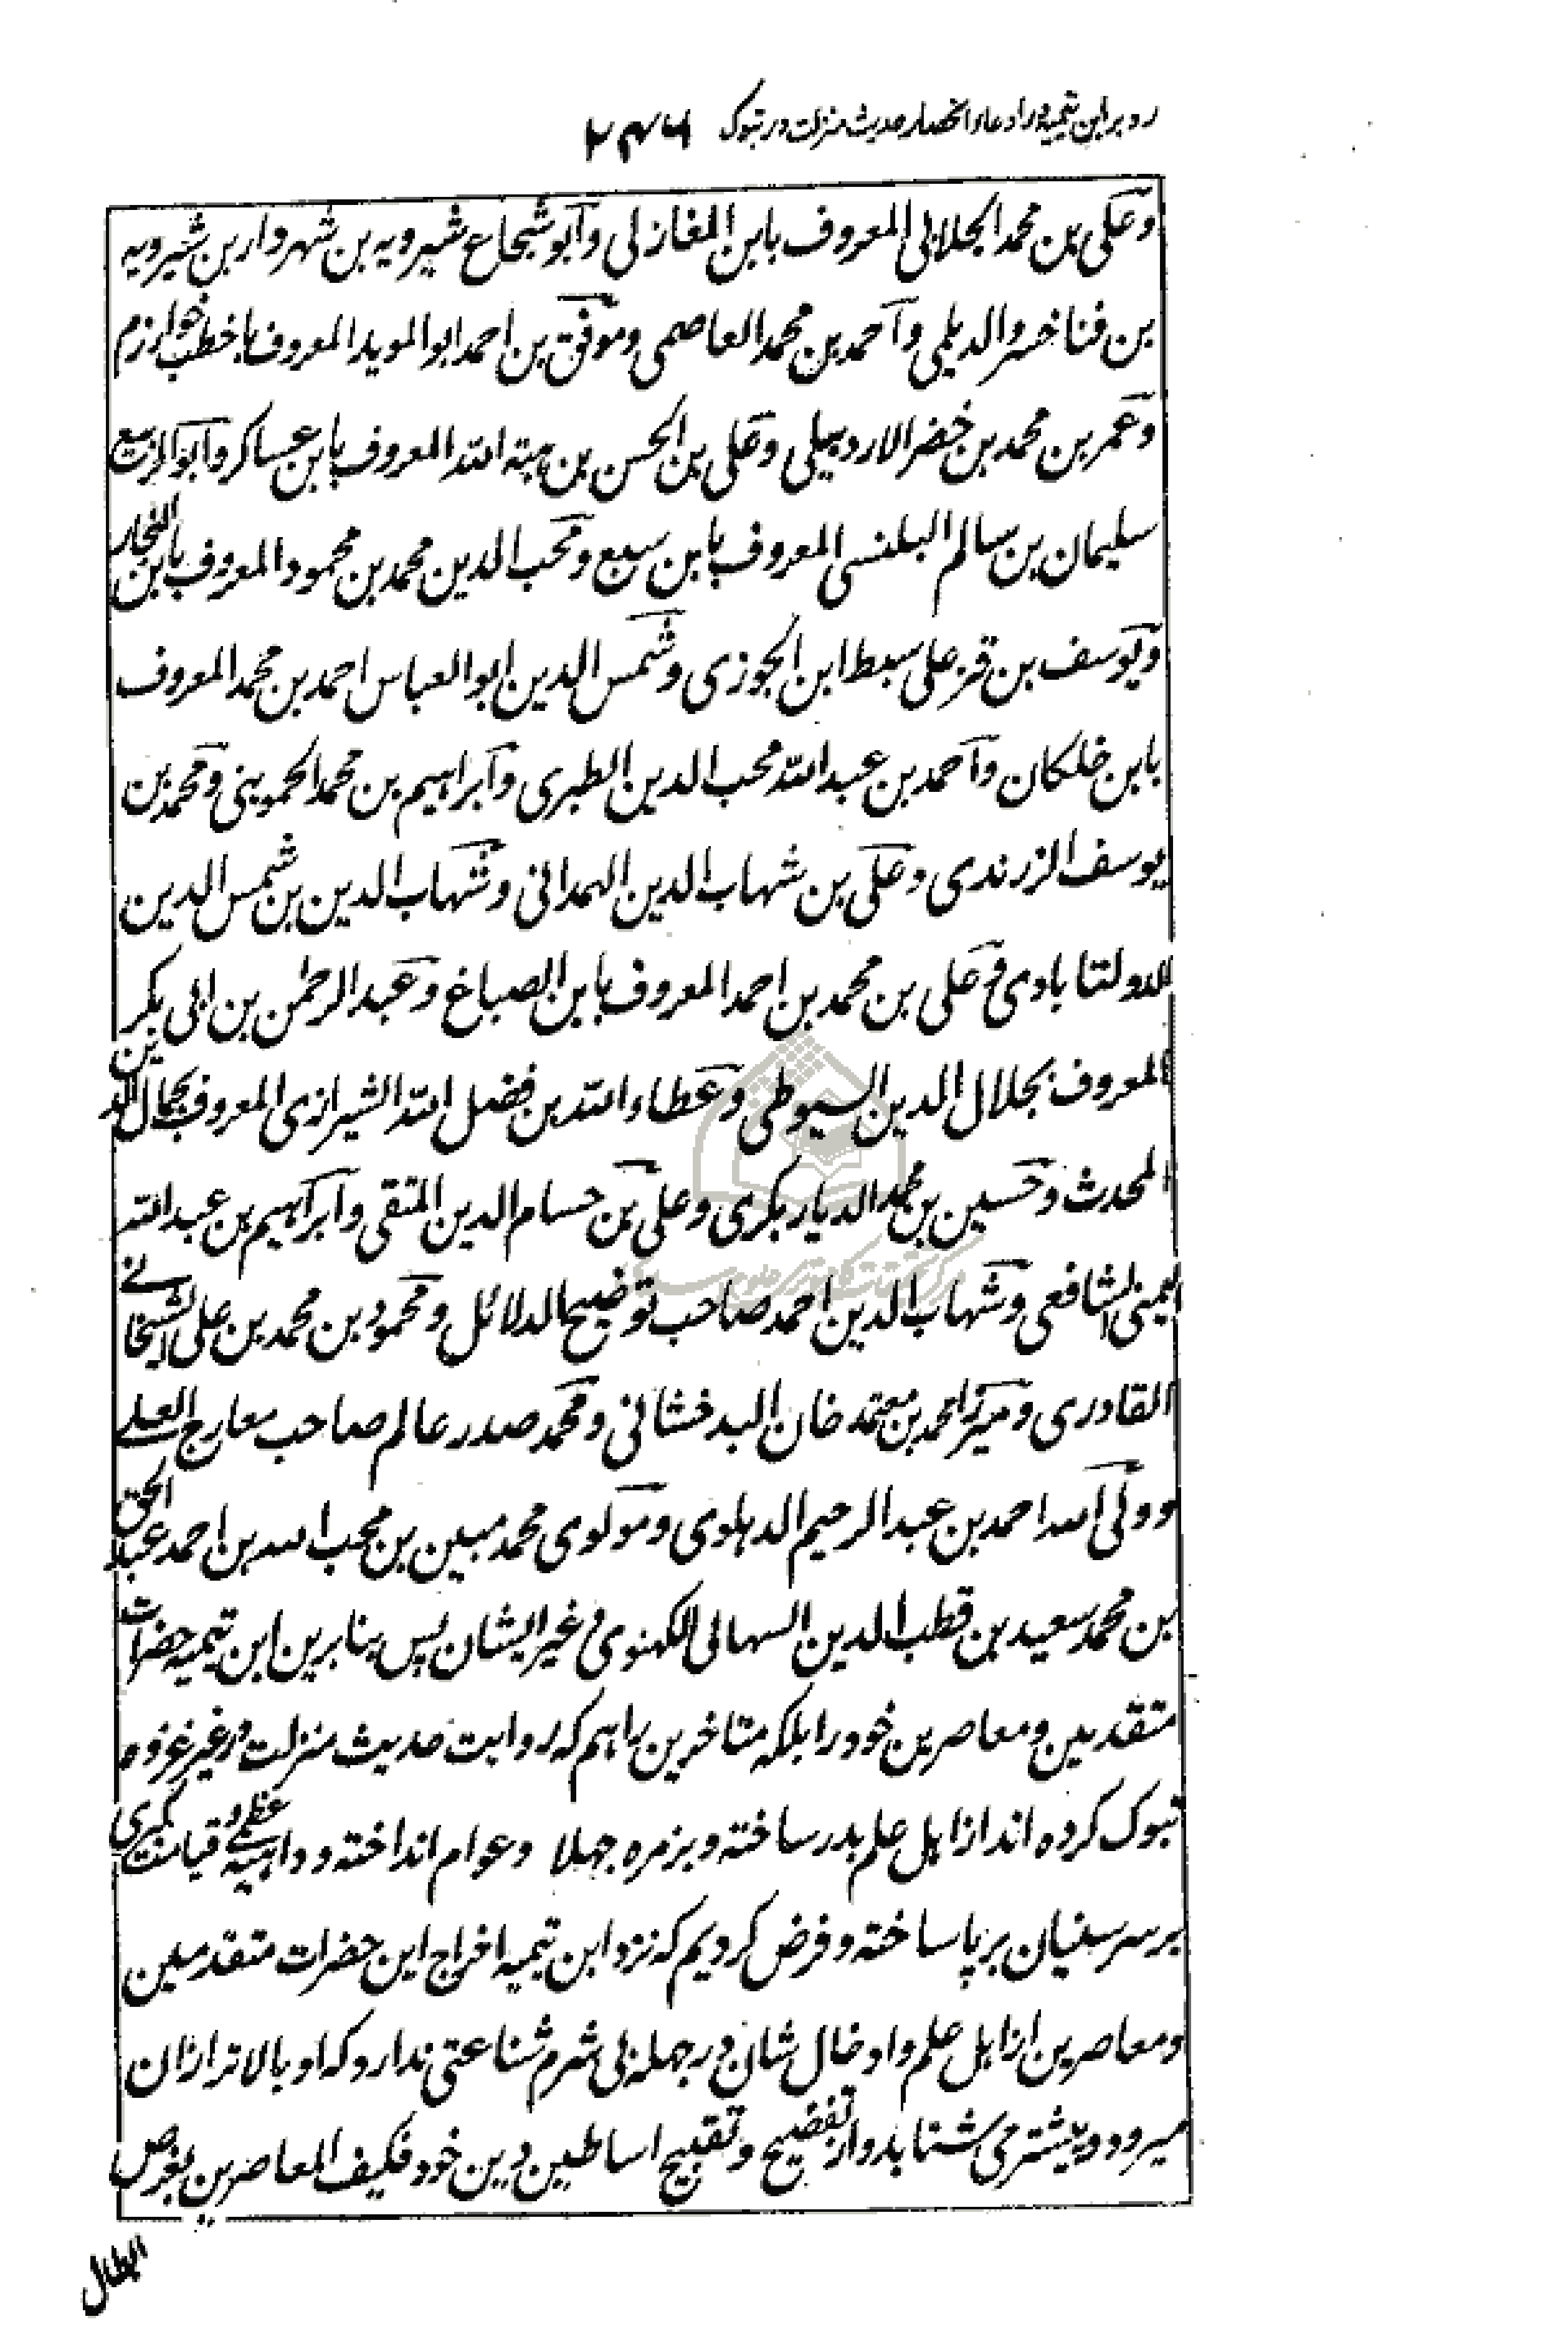 رد بر ابن تیمیه در ادعاء انحصار حدیث منزلت در تبوک ۲۴۶
وعلی بن محمد الجلابی المعروف بابن المغازلی وابو شجاع شیرویه بن شهردار بن شیرویه
بن فناخسرو الدیلمی واحمد بن محمد العاصمی وموفق بن احمد ابو الموید المعروف باخطب خوارزم
وعمر بن محمد بن خضر الاردبیلی وعلی بن الحسن بن هبة الله المعروف بابن عساکر وابو الربیع
سلیمان بن سالم البلنسی المعروف بابن سبع ومحب الدین محمد بن محمود المعروف بابن النجار
ویوسف بن قزعلی سبط ابن الجوزی وشمس الدین ابو العباس احمد بن محمد المعروف
بابن خلکان واحمد بن عبد الله محب الدین الطبری وابراهیم بن محمد الحموینی ومحمد بن
یوسف الزرندی وعلی بن شهاب الدین الهمدانی وشهاب الدین بن شمس الدین
الدولتابادی وعلی بن محمد بن احمد المعروف بابن الصباغ وعبد الرحمن بن ابی بکر
المعروف بجلال الدین السیوطی وعطاء الله بن فضل الله الشیرازی المعروف بجمال الدین
المحدث وحسین بن محمد الدیاربکری وعلی بن حسام الدین المتقی وابراهیم بن عبد الله
الیمینی الشافعی وشهاب الدین احمد صاحب توضیح الدلائل ومحمود بن محمد بن علی الشیخانے
القادری ومیرزا محمد بن معتمد خان البدخشانی ومحمد صدر عالم صاحب معارج العلے
وولی الله احمد بن عبد الرحیم الدهلوی ومولوی محمد مبین بن محب الله بن احمد عبد الحق
بن محمد سعید بن قطب الدین السهالی اللکهنوی وغیر ایشان پس بنابرین ابن تیمیه حضرات
متقدمین ومعاصرین خود را بلکه متاخرین را هم که روایت حدیث منزلت در غیر غزوه
تبوک کرده اند از اهل علم بدر ساخته وبزمره جهلا وعوام انداخته وداهیه عظمے وقیامت کبری
بر سر سنیان برپا ساخته وفرض کردیم که نزد ابن تیمیه اخراج این حضرات متقدمین
ومعاصرین از اهل علم وادخال شان در جمله بی شرم شناعتی ندارد که او بالاتر ازان
میرود وبیشتر می شتابد واز تفضیح وتقبیح اساطین دین خود فکیف المعاصرین بغرض
ابطال